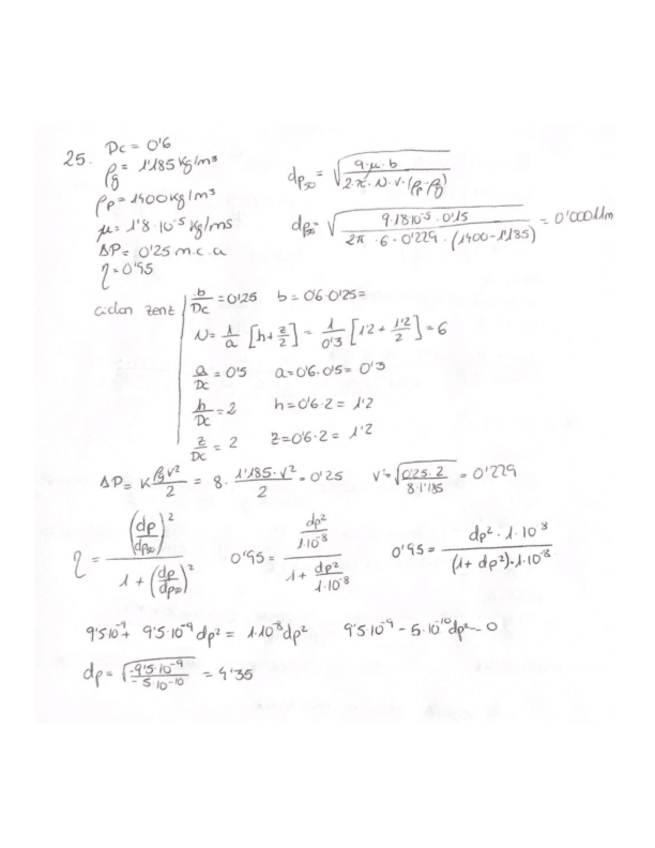 25. Dc = 0'6
ρg = 1'185 kg/m³
ρp = 1400 kg/m³
μ = 1'8·10⁻⁵ kg/ms
ΔP = 0'25 m.c.a
η = 0'95
dp₅₀ = √(9·μ·b / 2·π·N·v·(ρp-ρg))
dp₅₀ = √(9·1'8·10⁻⁵·0'15 / 2π·6·0'229·(1400-1'185)) = 0'0001m
ciclon zenz
b/Dc = 0'25 b = 0'6·0'25=
N = 1/a [h+z/2] = 1/0'3 [1'2 + 1'2/2] = 6
a/Dc = 0'5 a = 0'6·0'5 = 0'3
h/Dc = 2 h = 0'6·2 = 1'2
z/Dc = 2 z = 0'6·2 = 1'2
ΔP = K ρg v²/2 = 8· 1'185·v²/2 = 0'25 v = √(0'25·2 / 8·1'185) = 0'229
η = (dp/dp₅₀)² / 1 + (dp/dp₅₀)² 0'95 = (dp²/1·10⁻⁸) / (1 + dp²/1·10⁻⁸) 0'95 = dp²·1·10⁻⁸ / (1 + dp²)·1·10⁻⁸
9'5·10⁻⁹ + 9'5·10⁻⁹ dp² = 1·10⁻⁸ dp² 9'5·10⁻⁹ - 5·10⁻¹⁰ dp² = 0
dp = √(-9'5·10⁻⁹ / -5·10⁻¹⁰) = 4'35